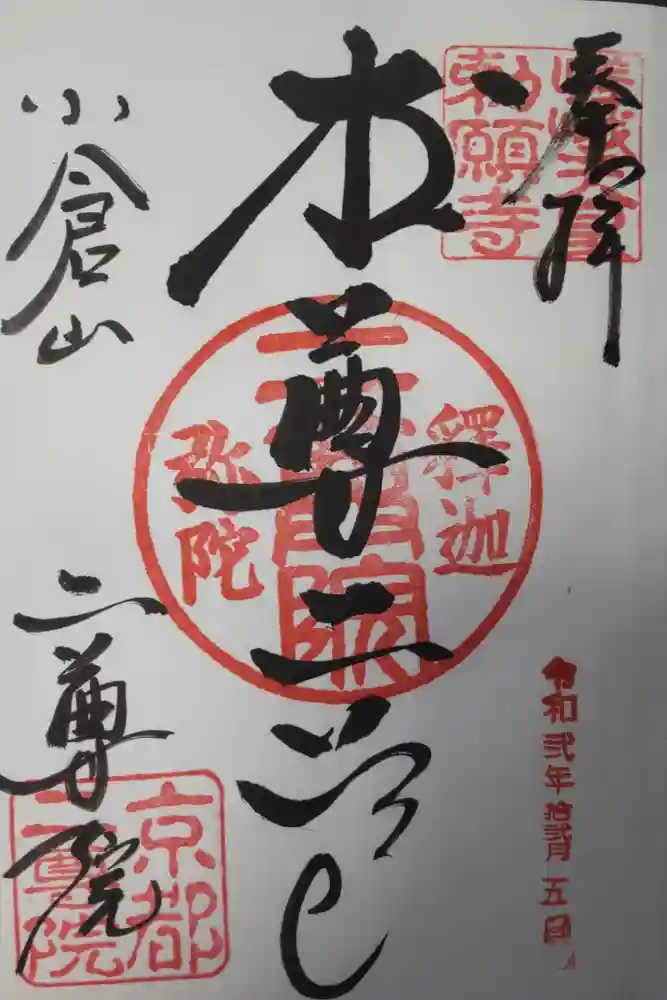 奉拝
嵯峨天皇
勅願寺
令和弐年拾弐月五日
本尊二
釋迦
二尊院
弥陀
小倉山
二尊院
京都
二尊院